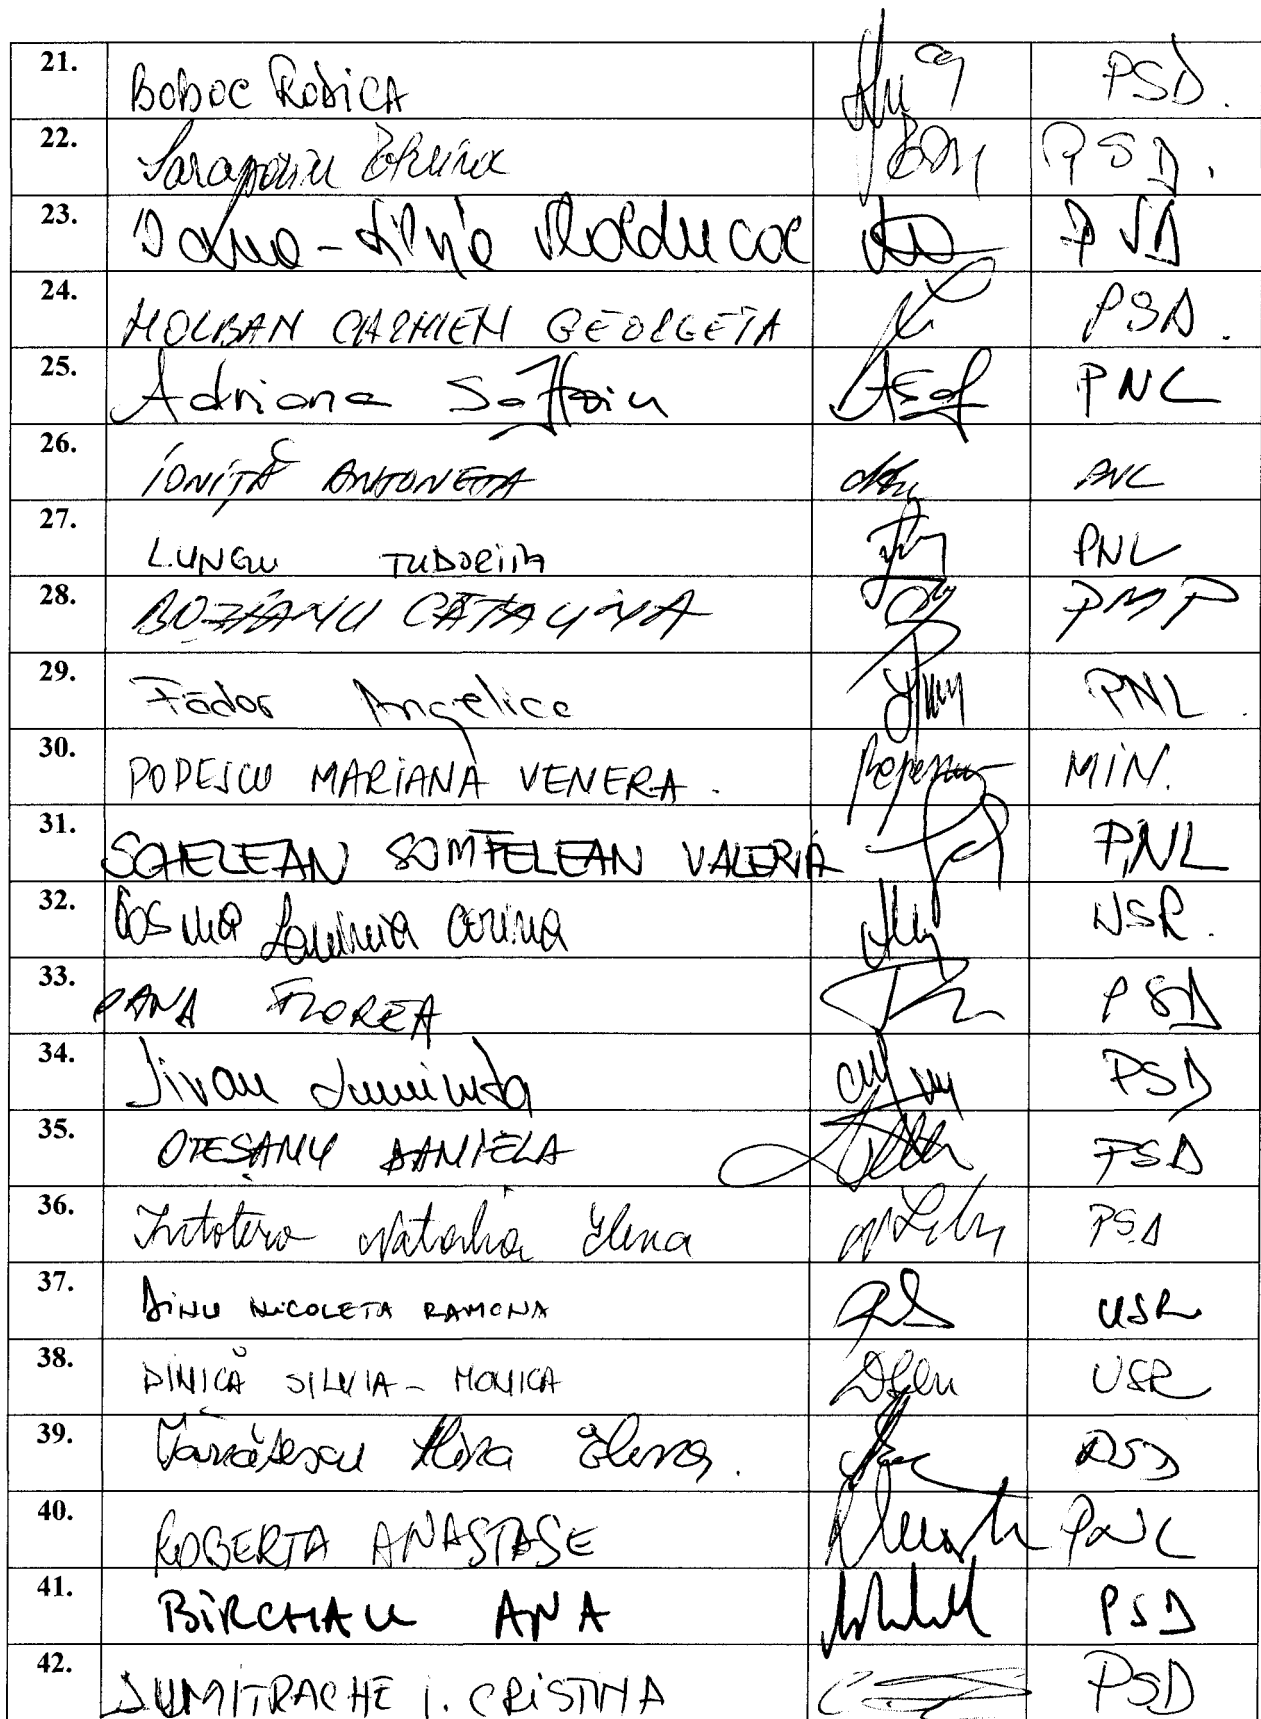 21. Boboc Rodica PSD.
22. PSD.
23. PSD
24. MOLBAN CARMEN GEORGETA PSD.
25. Adriana Săftoiu PNL
26. IONIȚĂ ANTONETA PNL
27. LUNGU TUDORIȚA PNL
28. BOZIANU CĂTĂLINA PMP
29. Fădor Angelica PNL.
30. POPESCU MARIANA VENERA. MIN.
31. SCHELEAN SOMFELEAN VALERIA PNL
32. Cosma Lavinia Corina USR.
33. PANĂ FLOREA PSD
34. Jivan Luminița PSD
35. OTEȘANU DANIELA PSD
36. Intotero Natalia Elena PSD
37. DINU NICOLETA RAMONA USR
38. DINICĂ SILVIA - MONICA USR
39. Elena. PSD
40. ROBERTA ANASTASE PNL
41. BIRCHALL ANA PSD
42. DUMITRACHE I. CRISTINA PSD